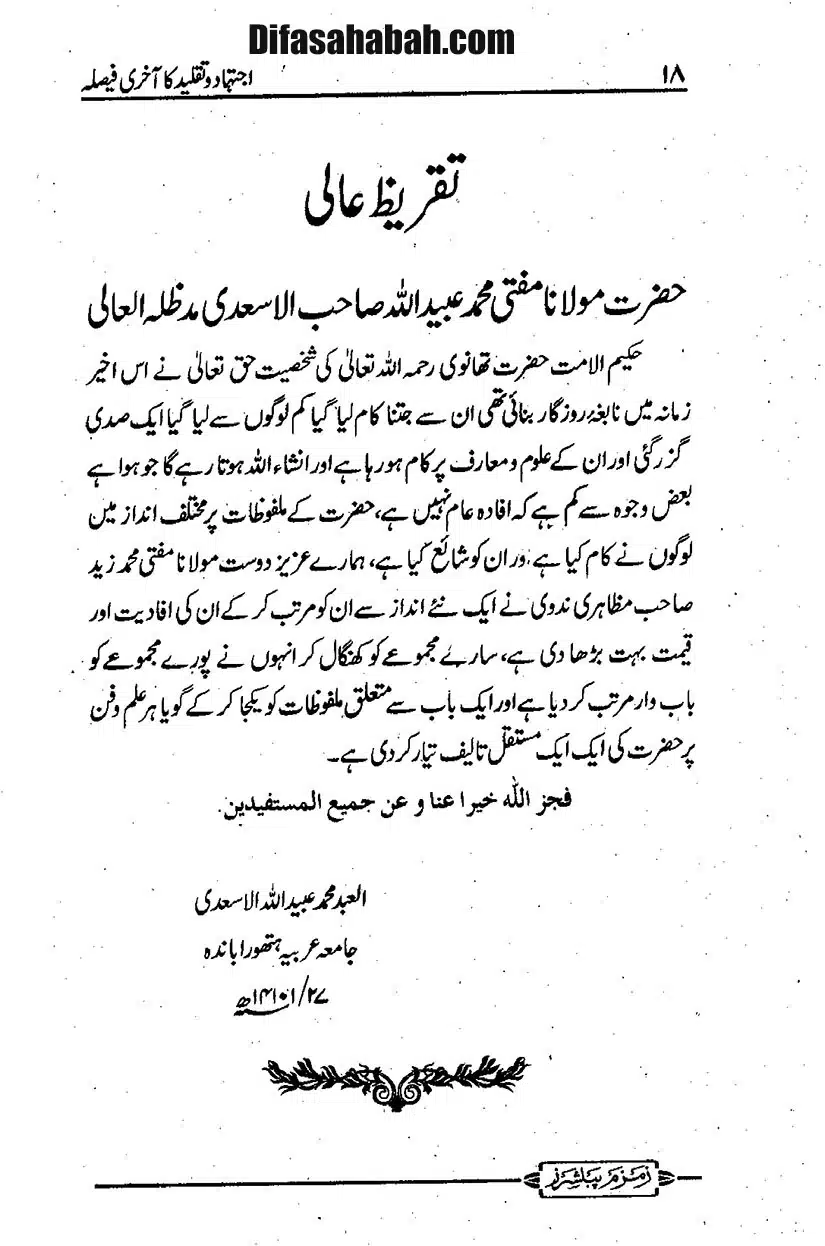 Difasahabah.com
۱۸ اجتہاد و تقلید کا آخری فیصلہ
تقریظ عالی
حضرت مولانا مفتی محمد عبید اللہ صاحب الاسعدی مدظلہ العالی
حکیم الامت حضرت تھانوی رحمہ اللہ تعالیٰ کی شخصیت حق تعالیٰ نے اس اخیر
زمانہ میں نابغۂ روزگار بنائی تھی ان سے جتنا کام لیا گیا کم لوگوں سے لیا گیا ایک صدی
گزر گئی اور ان کے علوم و معارف پر کام ہو رہا ہے اور انشاء اللہ ہوتا رہے گا جو ہوا ہے
بعض وجوہ سے کم ہے کہ افادہ عام نہیں ہے، حضرت کے ملفوظات پر مختلف انداز میں
لوگوں نے کام کیا ہے ور ان کو شائع کیا ہے، ہمارے عزیز دوست مولانا مفتی محمد زید
صاحب مظاہری ندوی نے ایک نئے انداز سے ان کو مرتب کر کے ان کی افادیت اور
قیمت بہت بڑھا دی ہے، سارے مجموعے کو کھنگال کر انہوں نے پورے مجموعے کو
باب وار مرتب کر دیا ہے اور ایک باب سے متعلق ملفوظات کو یکجا کر کے گویا ہر علم و فن
پر حضرت کی ایک ایک مستقل تالیف تیار کر دی ہے۔
فجز اللہ خیرا عنا و عن جمیع المستفیدین.
العبد محمد عبید اللہ الاسعدی
جامعہ عربیہ ہتھورا باندہ
۲۷/۱۴۱۰۱ھ
زمزم پبلشرز